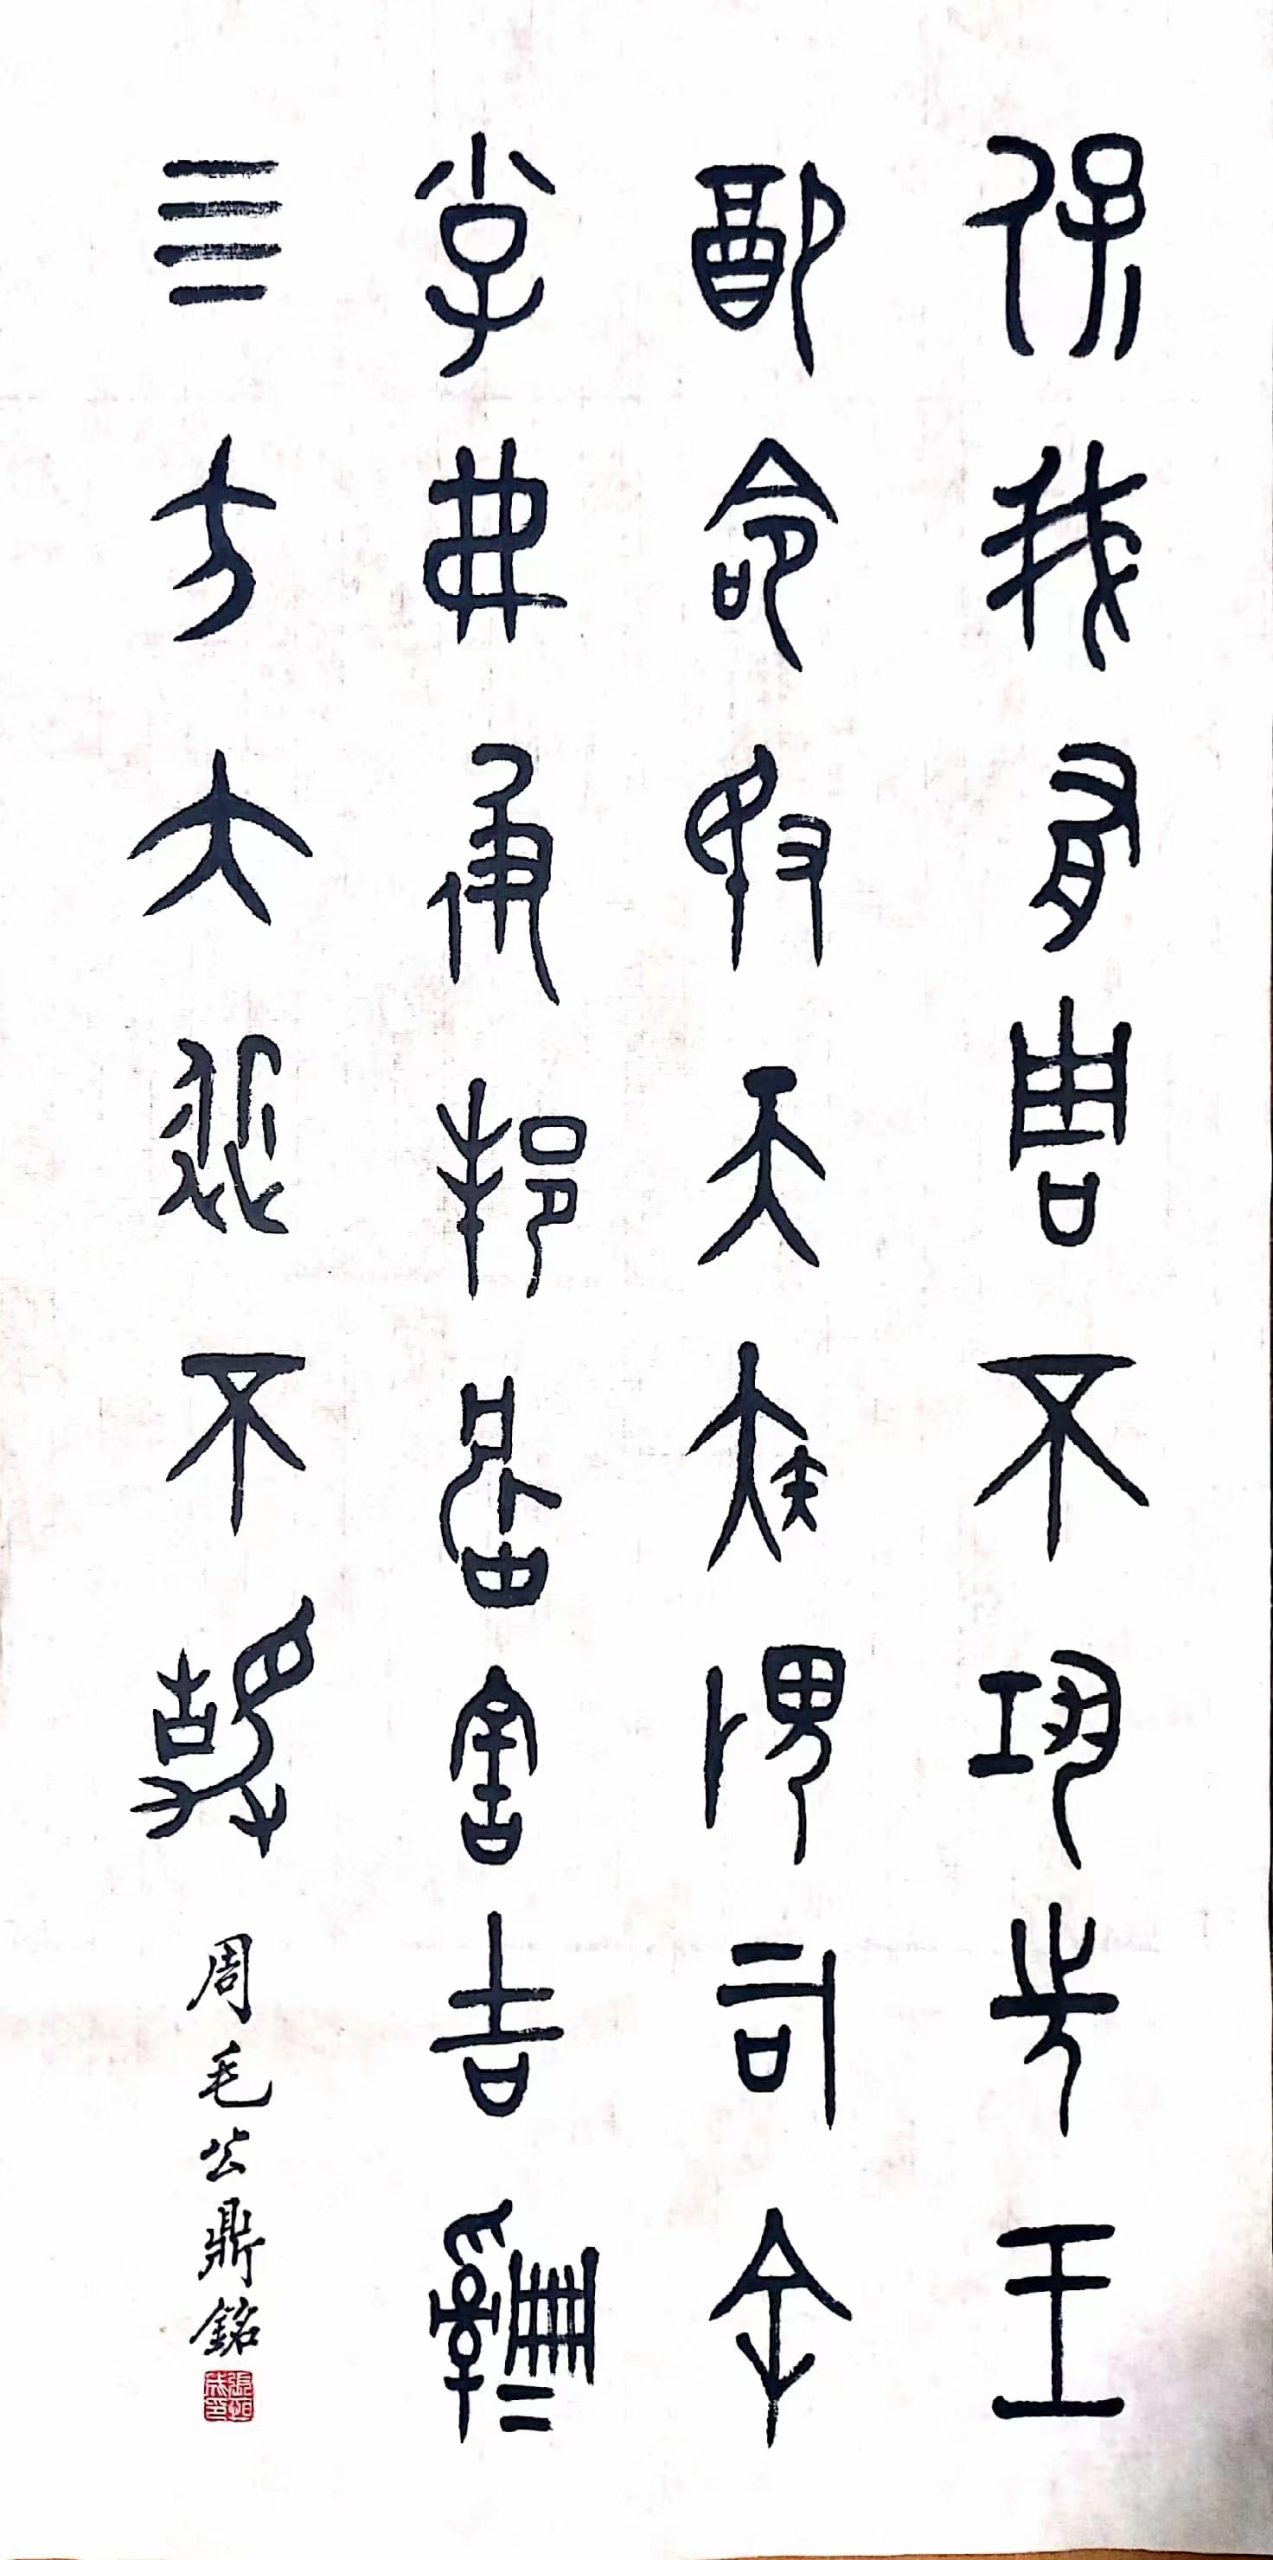 保我有周不巩先王
配命敃天疾畏司余
小子弗彶邦將害吉
四方大從不静
周毛公鼎銘